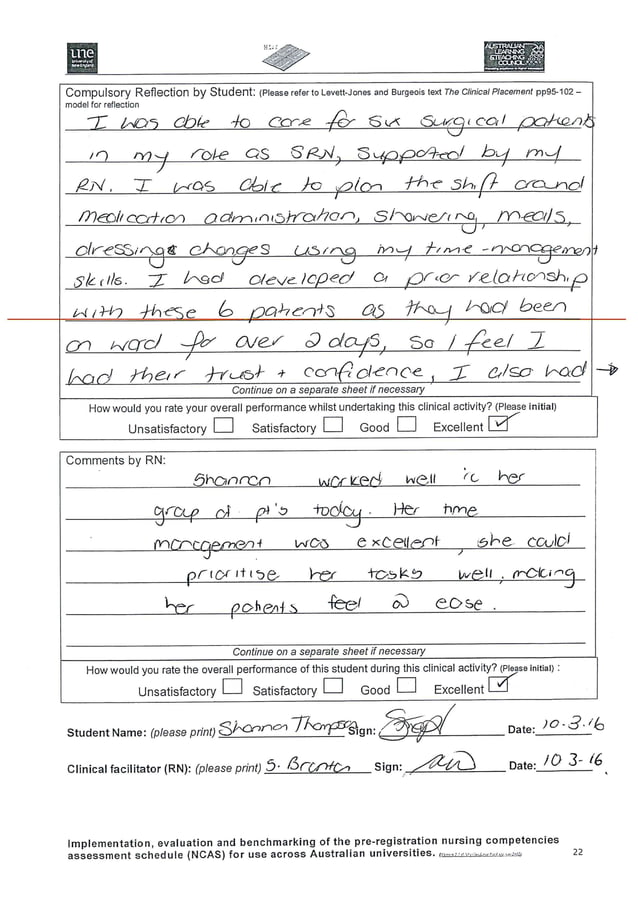 une
University of
New England
AUSTRALIAN
LEARNING
& TEACHING
COUNCIL
Compulsory Reflection by Student: (Please refer to Levett-Jones and Burgeois text The Clinical Placement pp95-102 –
model for reflection
I was able to care for six surgical patients
in my role as SRN, supported by my
RN. I was able to plan the shift around
medication administration, showering, meals,
dressings changes using my time-management
skills. I had developed a prior relationship
with these 6 patients as they had been
on ward for over 2 days, so I feel I
had their trust + confidence, I also had →
Continue on a separate sheet if necessary
How would you rate your overall performance whilst undertaking this clinical activity? (Please initial)
Unsatisfactory Satisfactory Good Excellent ✓
Comments by RN:
Shannon worked well in her
group of pt's today. Her time
management was excellent, she could
prioritise her tasks well, making
her patients feel @ ease.
Continue on a separate sheet if necessary
How would you rate the overall performance of this student during this clinical activity? (Please initial) :
Unsatisfactory Satisfactory Good Excellent ✓
Student Name: (please print) Shannon Thompson Sign: Date: 10.3.16
Clinical facilitator (RN): (please print) S. Brenton Sign: Date: 10 3-16
Implementation, evaluation and benchmarking of the pre-registration nursing competencies
assessment schedule (NCAS) for use across Australian universities.
22